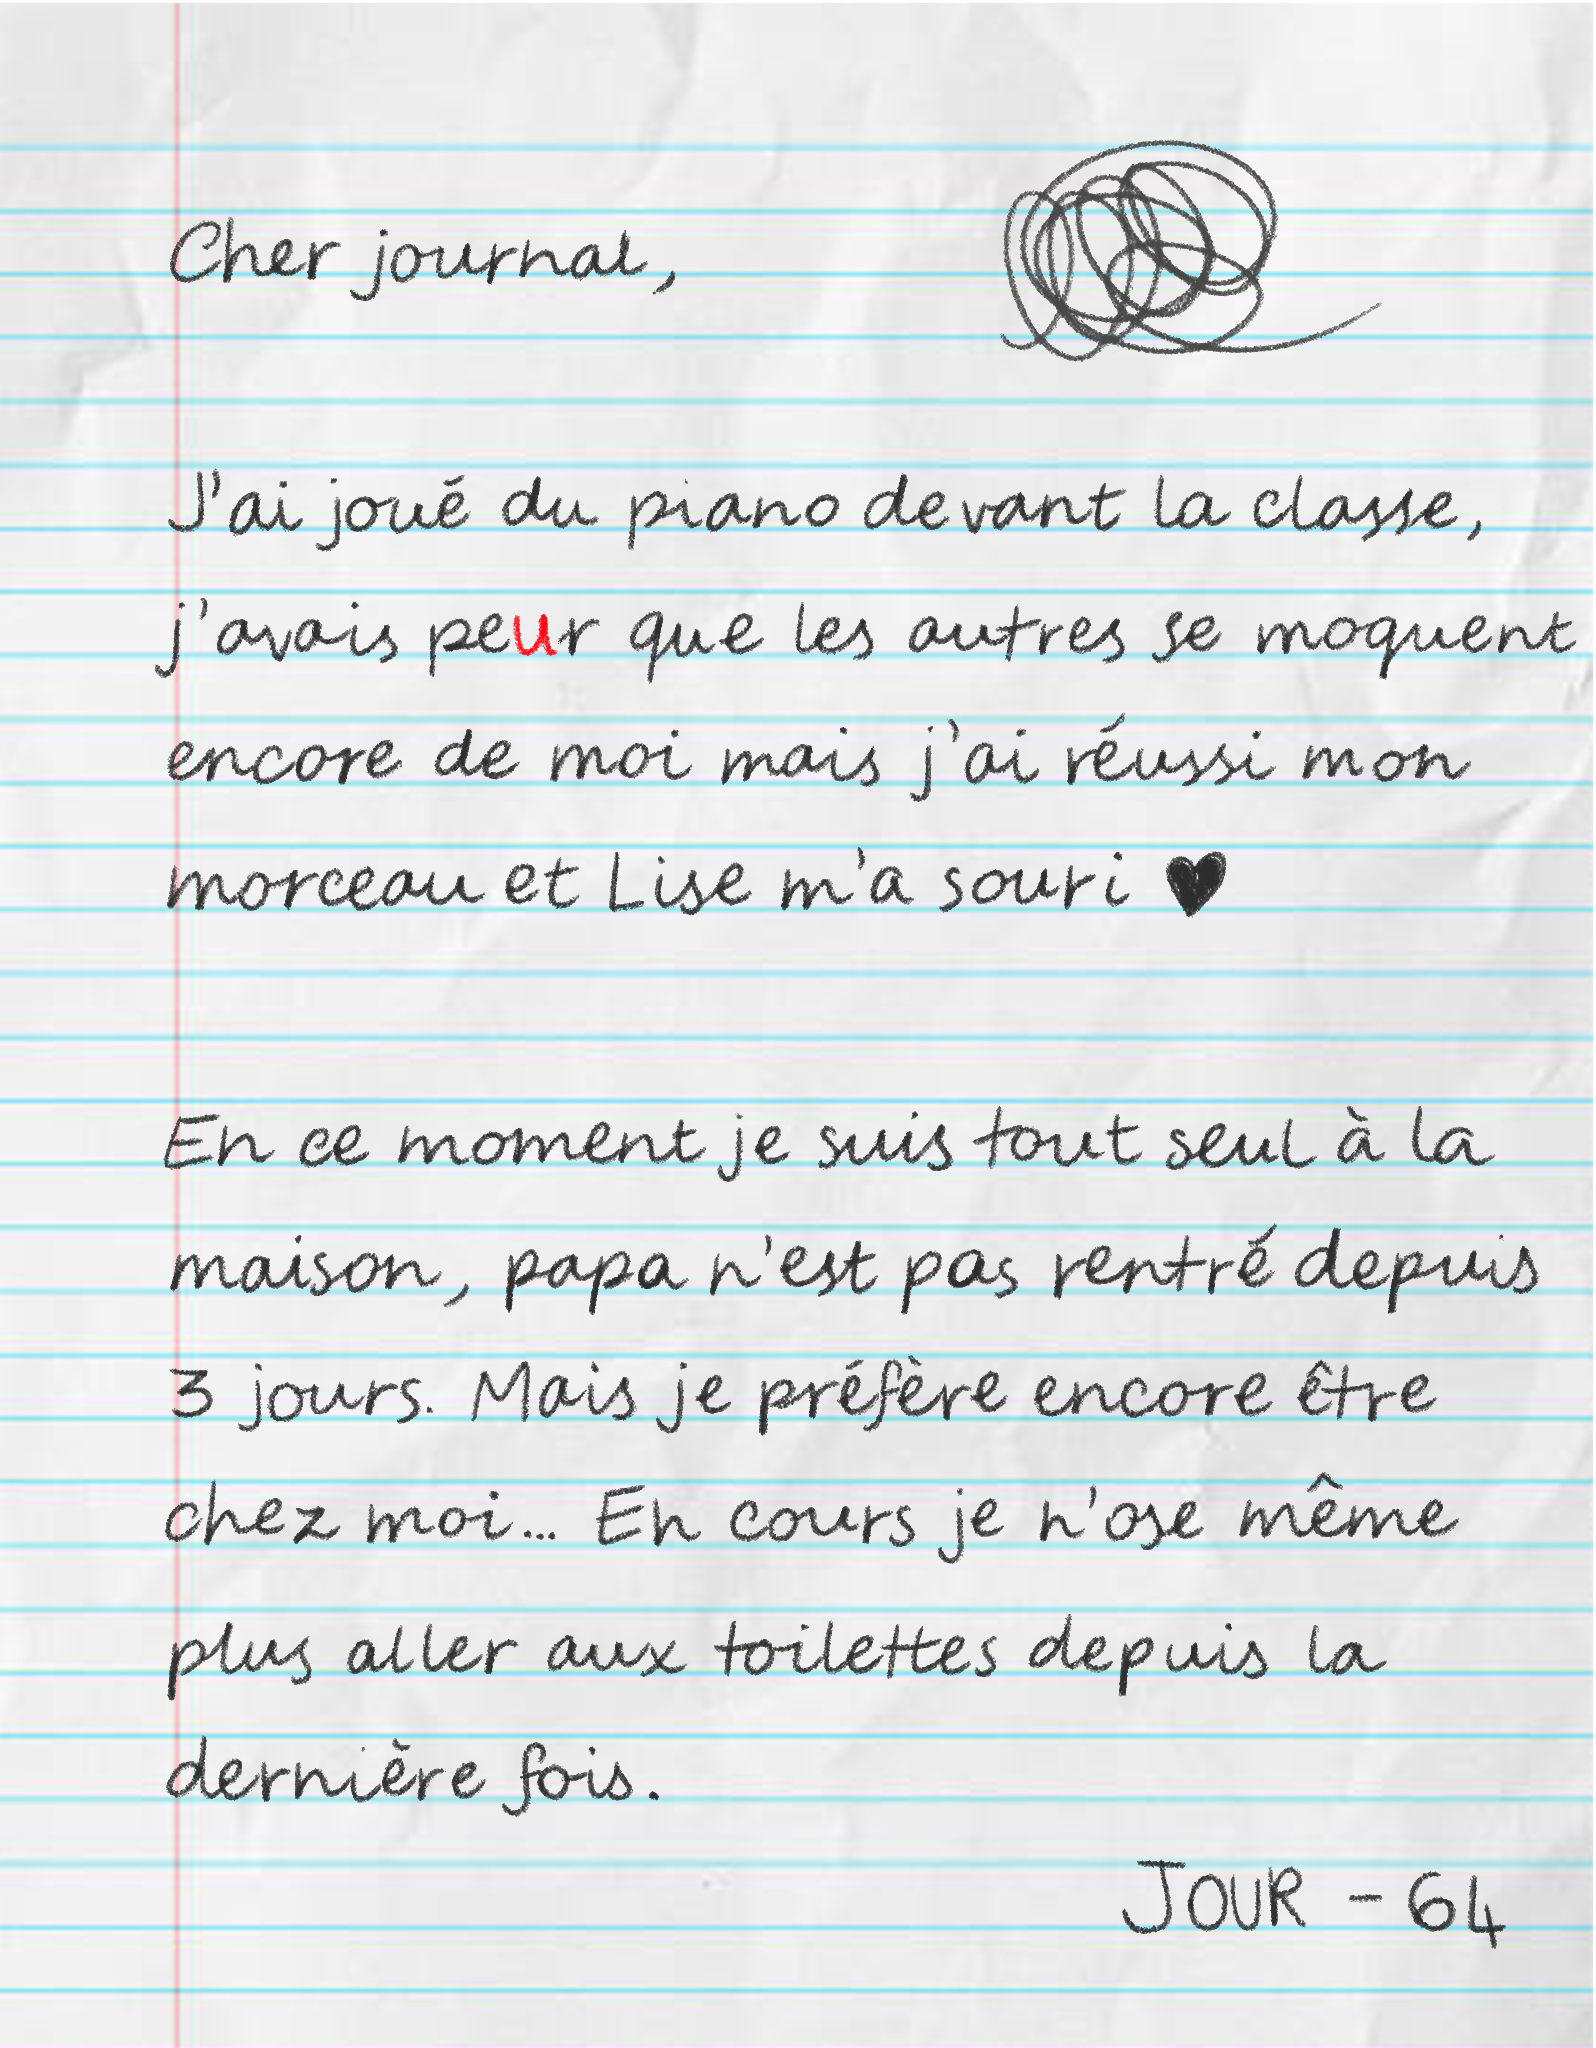 Cher journal,
J'ai joué du piano devant la classe,
j'avais peur que les autres se moquent
encore de moi mais j'ai réussi mon
morceau et Lise m'a souri ♥
En ce moment je suis tout seul à la
maison, papa n'est pas rentré depuis
3 jours. Mais je préfère encore être
chez moi... En cours je n'ose même
plus aller aux toilettes depuis la
dernière fois.
JOUR - 64